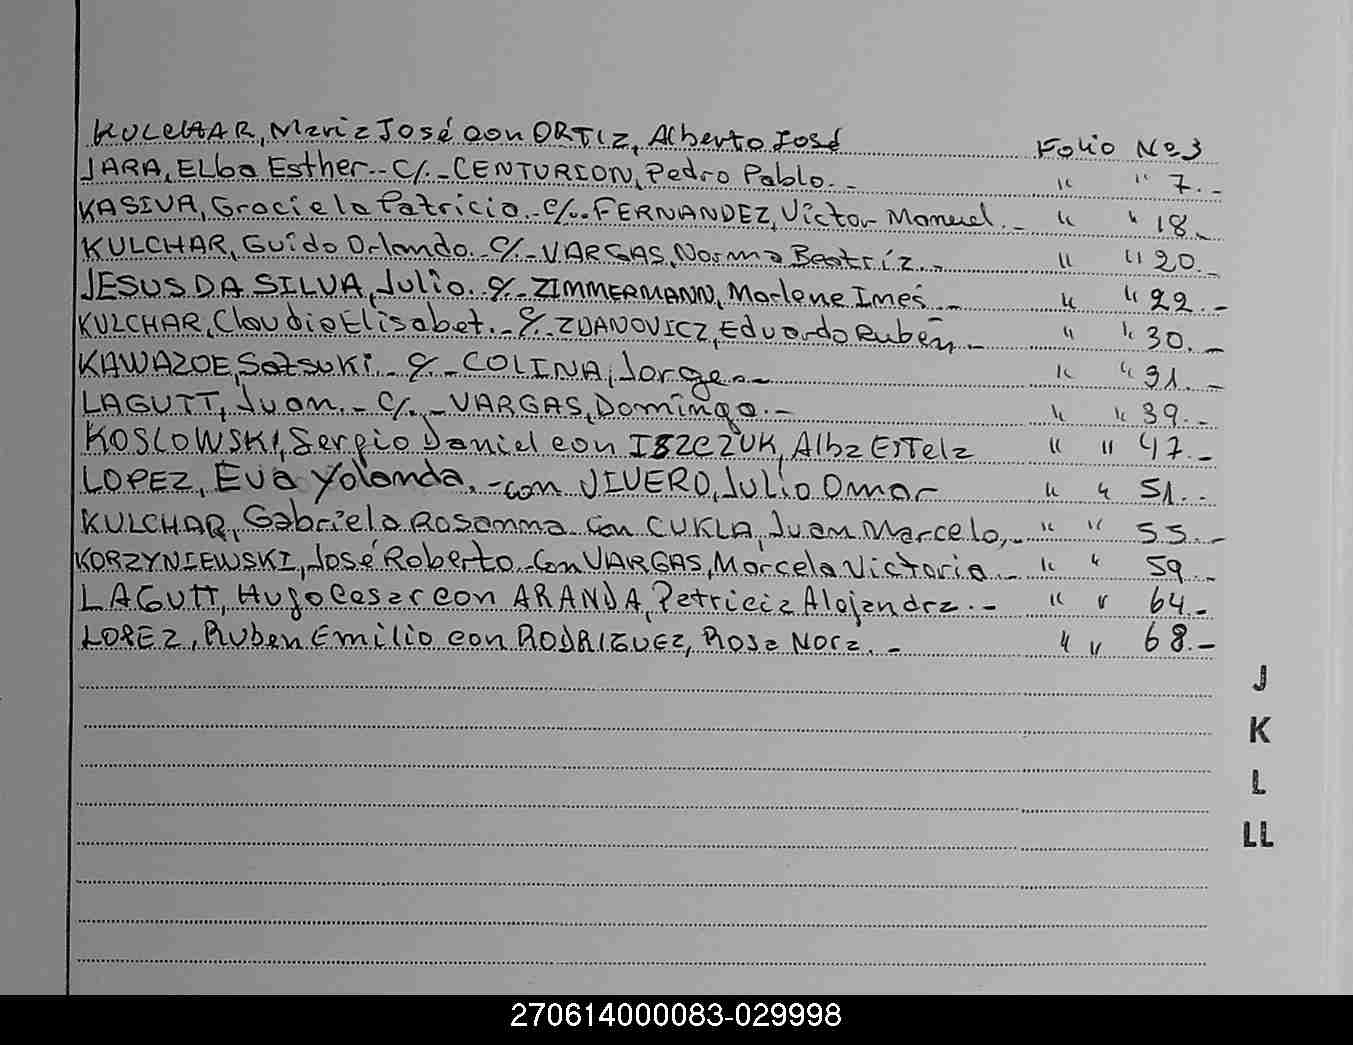 KULCHAR, Maria José con ORTIZ, Alberto José Folio Nº 3
JARA, ELba Esther.- C/.- CENTURION, Pedro Pablo.- " " 7.-
KASIVA, Graciela Patricia.- C/.- FERNANDEZ, Victor Manuel.- " " 18.-
KULCHAR, Guido Orlando.- C/.- VARGAS, Norma Beatriz.- " " 20.-
JESUS DA SILVA, Julio.- C/.- ZIMMERMANN, Marlene Ines.- " " 22.-
KULCHAR, Claudia Elisabet.- C/.- ZDANOVICZ, Eduardo Rubén.- " " 30.-
KAWAZOE, Satsuki.- C/.- COLINA, Jorge.- " " 31.-
LAGUTT, Juan.- C/.- VARGAS, Domingo.- " " 39.-
KOSLOWSKI, Sergio Daniel con ISZCZUK, Alba Estela " " 47.-
LOPEZ, Eva Yolanda.- con VIVERO, Julio Omar " " 51.-
KULCHAR, Gabriela Rosanna con CUKLA, Juan Marcelo,.- " " 55.-
KORZYNIEWSKI, José Roberto.- Con VARGAS, Marcela Victoria.- " " 59.-
LAGUTT, Hugo Cesar con ARANDA, Patricia Alejandra.- " " 64.-
LOPEZ, Ruben Emilio con RODRIGUEZ, Rosa Nora.- " " 68.-
J
K
L
LL
270614000083-029998